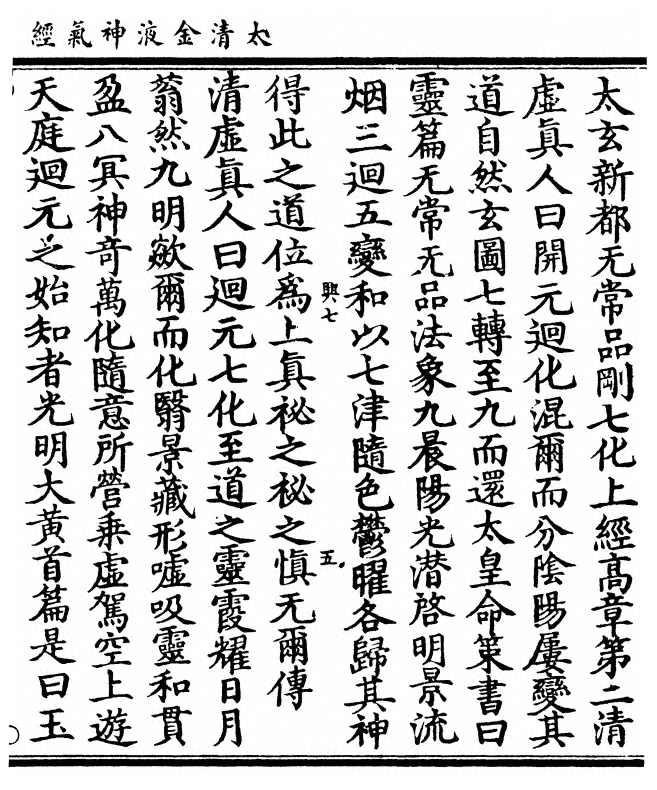 太清金液神氣經
太玄新都无常品剛七化上經高章第二清
虛眞人曰開元迴化混爾而分陰陽屢變其
道自然玄圖七轉至九而還太皇命策書曰
靈篇无常无品法象九晨陽光潜啓明景流
烟三迴五變和以七津隨色鬱曜各歸其神
興七
五
得此之道位爲上眞祕之祕之愼无爾傳
清虛眞人曰迴元七化至道之靈霞耀日月
蓊然九明歘爾而化翳景藏形噓吸靈和貫
盈八冥神竒萬化隨意所營乗虛駕空上遊
天庭迴元之始知者光明大黃首篇是曰玉